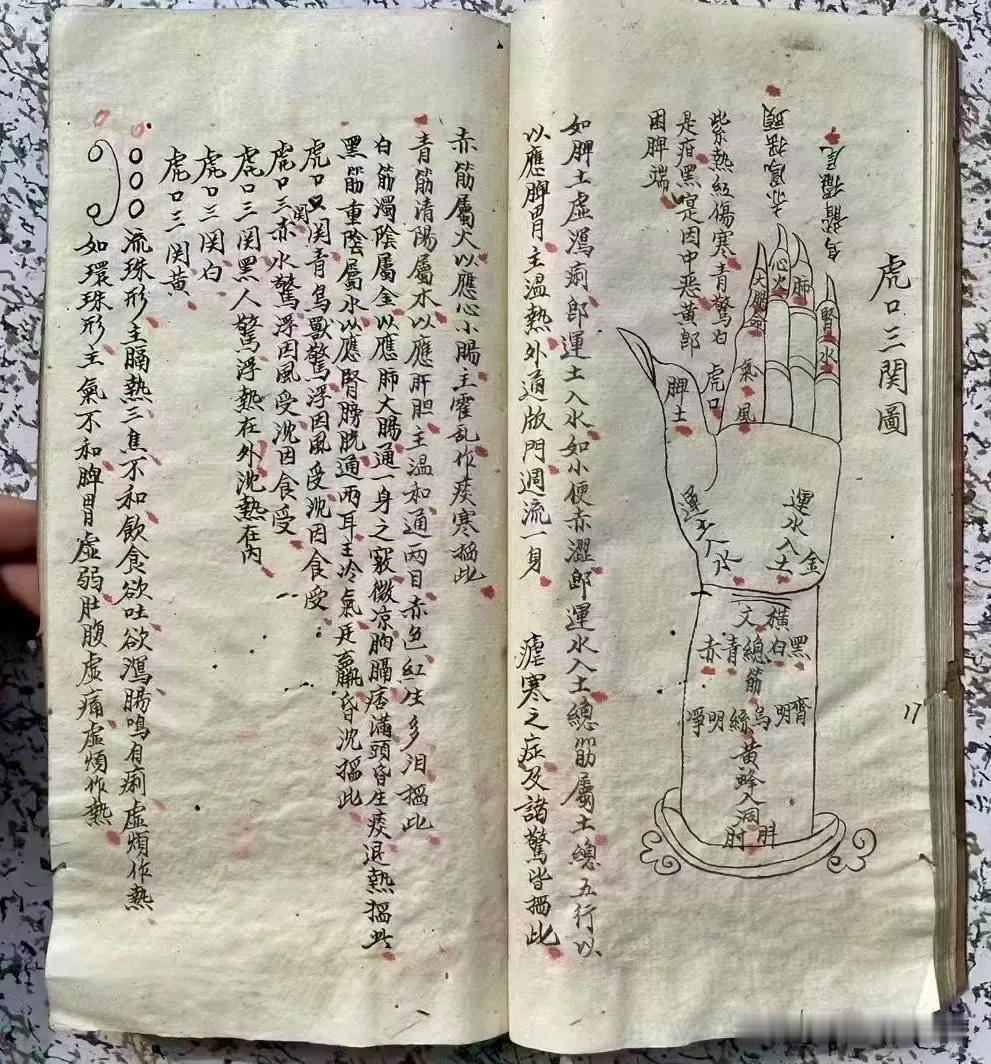 虎口三関圖
烏龍擺尾
赤鳳搖頭
心火
肺
腎水
大腸
命
氣
風
虎口
脾土
運水入土
運土入水
金
橫文
黑白總青赤
筋
黃蜂入洞
肘
紫熱紅傷寒青驚白
是疳黑寔因中恶黃郎
困脾瑞
17
如脾土虛瀉痢郎運土入水如小便赤澀郎運水入土總筋屬土總五行以
以應脾胃主温熱外通版門週流一身 瘧寒之症及諸驚皆搯此
赤筋屬火以應心小腸主霍乱作痰寒搯此
青筋清陽屬木以應肝胆主温和通兩目赤色紅生多泪搯此
白筋濁陰屬金以應肺大腸通一身之竅微凉胸膈痞滿頭昏生痰退熱搯此
黑筋重陰屬水以應腎膀胱通兩耳主冷氣尫羸昏沈搯此
虎口関青鳥獸驚浮因風受沈因食受
虎口三関赤水驚浮因風受沈因食受
虎口三関黑人驚浮熱在外沈熱在內
虎口三関白
虎口三関黃
流珠形主膈熱三焦不和飲食欲吐欲瀉腸鳴有痢虛煩作熱
如環珠形主氣不和脾胃虛弱肚腹虛痛虛煩作熱